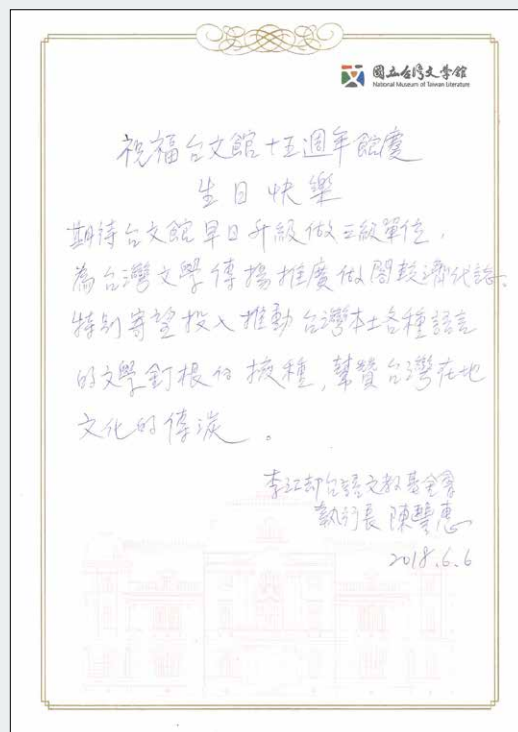 國立台灣文學館
National Museum of Taiwan Literature
祝福台文館十五週年館慶
生日快樂
期待台文館早日升級做三級單位,
為台灣文學傳播推廣做閣較濟代誌.
特別寄望投入推動台灣本土各種語言
的文學釘根佮掖種,幫贊台灣在地
文化的傳湠。
李江却台語文教基金會
執行長 陳豐惠
2018.6.6